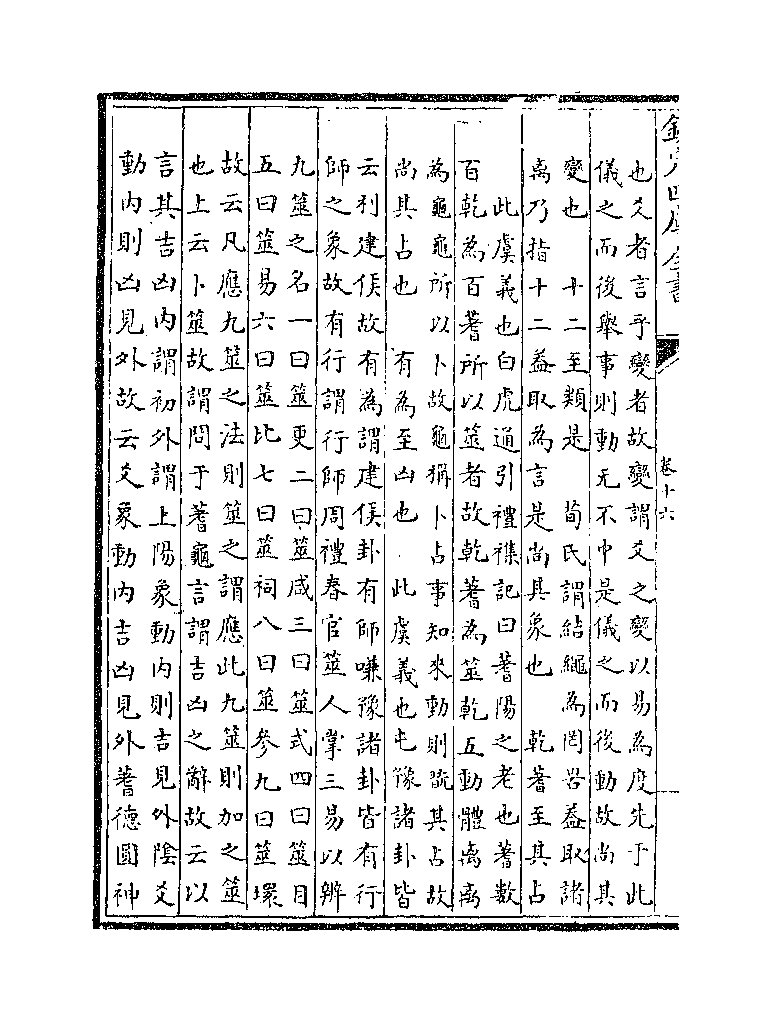 欽定四庫全書
卷十六
也爻者言乎變者故變謂爻之變以易為度先于此
儀之而後舉事則動无不中是儀之而後動故尚其
變也　十二至類是　荀氏謂結繩為罔罟葢取諸
离乃指十二葢取為言是尚其象也　乾蓍至其占
此虞義也白虎通引禮襍記曰蓍陽之老也蓍數
百乾為百蓍所以筮者故乾蓍為筮乾五動體离离
為龜龜所以卜故龜稱卜占事知來動則翫其占故
尚其占也　有為至凶也　此虞義也屯豫諸卦皆
云利建侯故有為謂建侯卦有師嗛豫諸卦皆有行
師之象故有行謂行師周禮春官筮人掌三易以辨
九筮之名一曰筮更二曰筮咸三曰筮式四曰筮目
五曰筮易六曰筮比七曰筮祠八曰筮參九曰筮環
故云凡應九筮之法則筮之謂應此九筮則加之筮
也上云卜筮故謂問于蓍龜言謂吉凶之辭故云以
言其吉凶內謂初外謂上陽象動內則吉見外陰爻
動內則凶見外故云爻象動內吉凶見外蓍德圓神